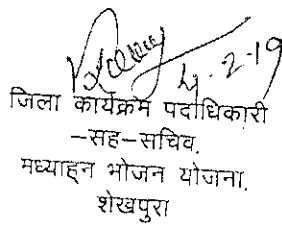 4-2-19
जिला कार्यक्रम पदाधिकारी
-सह-सचिव,
मध्याह्न भोजन योजना,
शेखपुरा